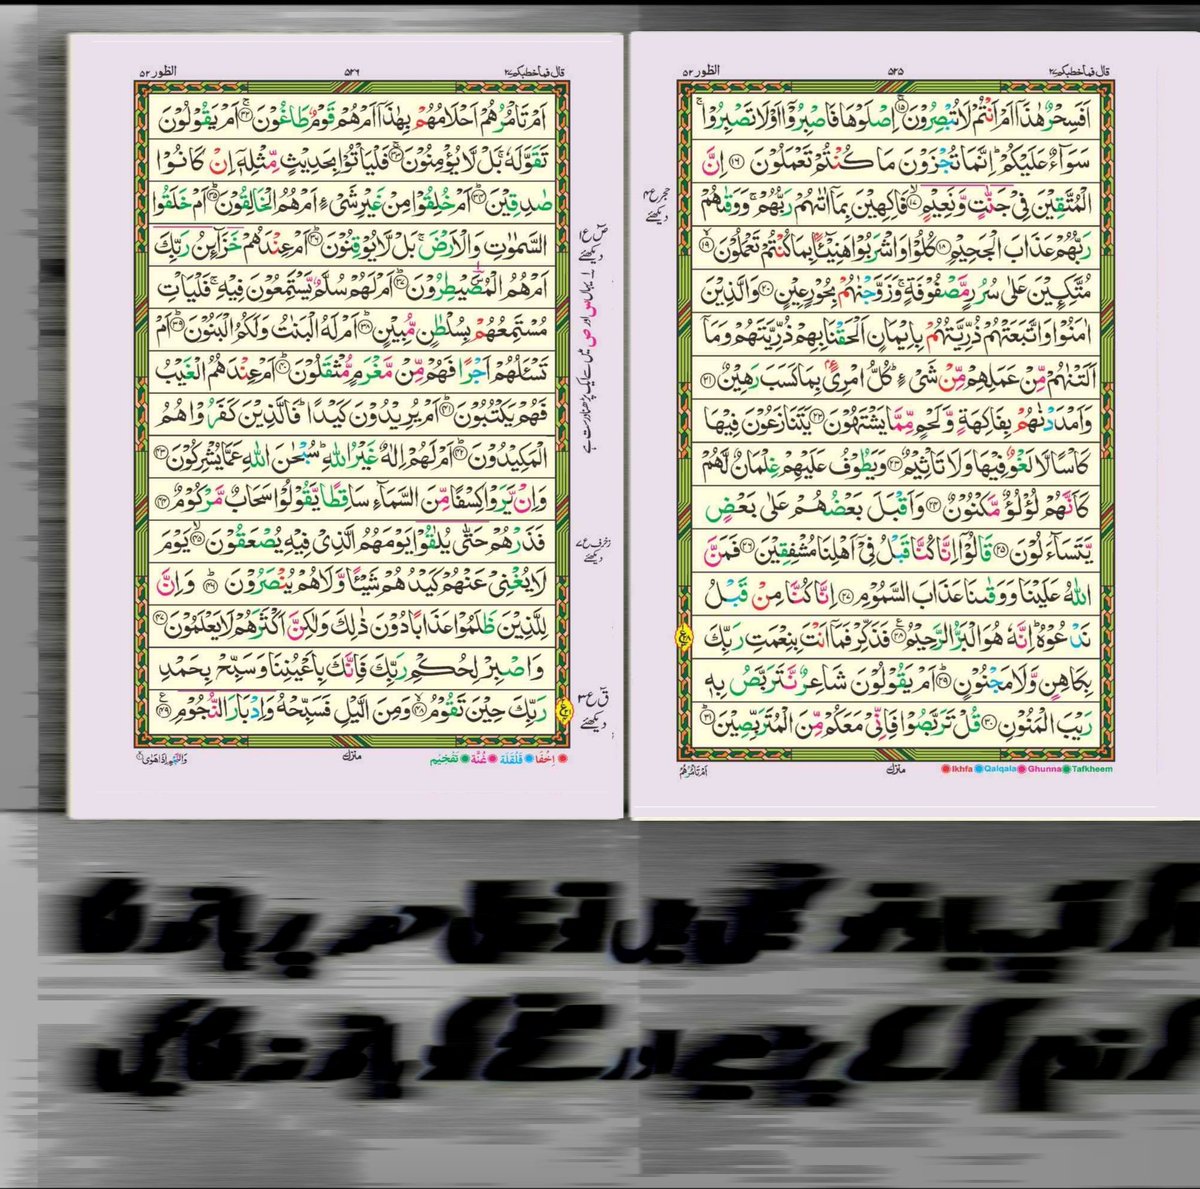 قال فماخطبکم ٢٧ ٥٣٥ الطور ٥٢
اَفَسِحْرٌ هٰذَآ اَمْ اَنْتُمْ لَا تُبْصِرُوْنَ ۚ‏ ١٥ اِصْلَوْهَا فَاصْبِرُوْٓا اَوْ لَا تَصْبِرُوْا ۚ
سَوَآءٌ عَلَيْكُمْ ؕ اِنَّمَا تُجْزَوْنَ مَا كُنْتُمْ تَعْمَلُوْنَ ١٦ اِنَّ
الْمُتَّقِيْنَ فِيْ جَنّٰتٍ وَّنَعِيْمٍ ۙ ١٧ فَاكِهِيْنَ بِمَآ اٰتٰىهُمْ رَبُّهُمْ ۚ وَوَقٰىهُمْ
رَبُّهُمْ عَذَابَ الْجَحِيْمِ ١٨ كُلُوْا وَاشْرَبُوْا هَنِيْٓئًۢا بِمَا كُنْتُمْ تَعْمَلُوْنَ ۙ ١٩
مُتَّكِـِٕيْنَ عَلٰى سُرُرٍ مَّصْفُوْفَةٍ ۚ وَزَوَّجْنٰهُمْ بِحُوْرٍ عِيْنٍ ٢٠ وَالَّذِيْنَ
اٰمَنُوْا وَاتَّبَعَتْهُمْ ذُرِّيَّتُهُمْ بِاِيْمَانٍ اَلْحَقْنَا بِهِمْ ذُرِّيَّتَهُمْ وَمَآ
اَلَتْنٰهُمْ مِّنْ عَمَلِهِمْ مِّنْ شَيْءٍ ؕ كُلُّ امْرِئٍۢ بِمَا كَسَبَ رَهِيْنٌ ٢١
وَاَمْدَدْنٰهُمْ بِفَاكِهَةٍ وَّلَحْمٍ مِّمَّا يَشْتَهُوْنَ ٢٢ يَتَنَازَعُوْنَ فِيْهَا
كَاْسًا لَّا لَغْوٌ فِيْهَا وَلَا تَاْثِيْمٌ ٢٣ وَيَطُوْفُ عَلَيْهِمْ غِلْمَانٌ لَّهُمْ
كَاَنَّهُمْ لُؤْلُؤٌ مَّكْنُوْنٌ ٢٤ وَاَقْبَلَ بَعْضُهُمْ عَلٰى بَعْضٍ
يَّتَسَآءَلُوْنَ ٢٥ قَالُوْٓا اِنَّا كُنَّا قَبْلُ فِيْٓ اَهْلِنَا مُشْفِقِيْنَ ٢٦ فَمَنَّ
اللّٰهُ عَلَيْنَا وَوَقٰىنَا عَذَابَ السَّمُوْمِ ٢٧ اِنَّا كُنَّا مِنْ قَبْلُ
نَدْعُوْهُ ؕ اِنَّهٗ هُوَ الْبَرُّ الرَّحِيْمُ ٢٨ فَذَكِّرْ فَمَآ اَنْتَ بِنِعْمَتِ رَبِّكَ
بِكَاهِنٍ وَّلَا مَجْنُوْنٍ ؕ ٢٩ اَمْ يَقُوْلُوْنَ شَاعِرٌ نَّتَرَبَّصُ بِهٖ
رَيْبَ الْمَنُوْنِ ٣٠ قُلْ تَرَبَّصُوْا فَاِنِّيْ مَعَكُمْ مِّنَ الْمُتَرَبِّصِيْنَ ؕ ٣١
حجر ع ۴
دیکھئے
Ikhfa Qalqala Ghunna Tafkheem
منزل
اَمْ تَاْمُرُهُمْ
قال فماخطبکم ٢٧ ٥٣٦ الطور ٥٢
اَمْ تَاْمُرُهُمْ اَحْلَامُهُمْ بِهٰذَآ اَمْ هُمْ قَوْمٌ طَاغُوْنَ ۚ ٣٢ اَمْ يَقُوْلُوْنَ
تَقَوَّلَهٗ ۚ بَلْ لَّا يُؤْمِنُوْنَ ۚ ٣٣ فَلْيَاْتُوْا بِحَدِيْثٍ مِّثْلِهٖٓ اِنْ كَانُوْا
صٰدِقِيْنَ ؕ ٣٤ اَمْ خُلِقُوْا مِنْ غَيْرِ شَيْءٍ اَمْ هُمُ الْخَالِقُوْنَ ؕ ٣٥ اَمْ خَلَقُوا
السَّمٰوٰتِ وَالْاَرْضَ ۚ بَلْ لَّا يُوْقِنُوْنَ ؕ ٣٦ اَمْ عِنْدَهُمْ خَزَآئِنُ رَبِّكَ
اَمْ هُمُ الْمُصَۜيْطِرُوْنَ ؕ ٣٧ اَمْ لَهُمْ سُلَّمٌ يَّسْتَمِعُوْنَ فِيْهِ ۚ فَلْيَاْتِ
مُسْتَمِعُهُمْ بِسُلْطٰنٍ مُّبِيْنٍ ؕ ٣٨ اَمْ لَهُ الْبَنٰتُ وَلَكُمُ الْبَنُوْنَ ؕ ٣٩ اَمْ
تَسْـَٔلُهُمْ اَجْرًا فَهُمْ مِّنْ مَّغْرَمٍ مُّثْقَلُوْنَ ؕ ٤٠ اَمْ عِنْدَهُمُ الْغَيْبُ
فَهُمْ يَكْتُبُوْنَ ؕ ٤١ اَمْ يُرِيْدُوْنَ كَيْدًا ؕ فَالَّذِيْنَ كَفَرُوْا هُمُ
الْمَكِيْدُوْنَ ؕ ٤٢ اَمْ لَهُمْ اِلٰهٌ غَيْرُ اللّٰهِ ؕ سُبْحٰنَ اللّٰهِ عَمَّا يُشْرِكُوْنَ ٤٣
وَاِنْ يَّرَوْا كِسْفًا مِّنَ السَّمَآءِ سَاقِطًا يَّقُوْلُوْا سَحَابٌ مَّرْكُوْمٌ ٤٤
فَذَرْهُمْ حَتّٰى يُلٰقُوْا يَوْمَهُمُ الَّذِيْ فِيْهِ يُصْعَقُوْنَ ۙ ٤٥ يَوْمَ
لَا يُغْنِيْ عَنْهُمْ كَيْدُهُمْ شَيْـًٔا وَّلَا هُمْ يُنْصَرُوْنَ ؕ ٤٦ وَاِنَّ
لِلَّذِيْنَ ظَلَمُوْا عَذَابًا دُوْنَ ذٰلِكَ وَلٰكِنَّ اَكْثَرَهُمْ لَا يَعْلَمُوْنَ ٤٧
وَاصْبِرْ لِحُكْمِ رَبِّكَ فَاِنَّكَ بِاَعْيُنِنَا وَسَبِّحْ بِحَمْدِ
رَبِّكَ حِيْنَ تَقُوْمُ ۙ ٤٨ وَمِنَ الَّيْلِ فَسَبِّحْهُ وَاِدْبَارَ النُّجُوْمِ ٤٩
دیکھئے
یہاں س اور ص میں سے ایک پڑھنا درست ہے
زخرف ع ۷
دیکھئے
ق ع ۳
دیکھئے
اِخْفَا قَلْقَلَة غُنَّة تَفْخِيْم
منزل
وَالنَّجْمِ اِذَا هَوٰى